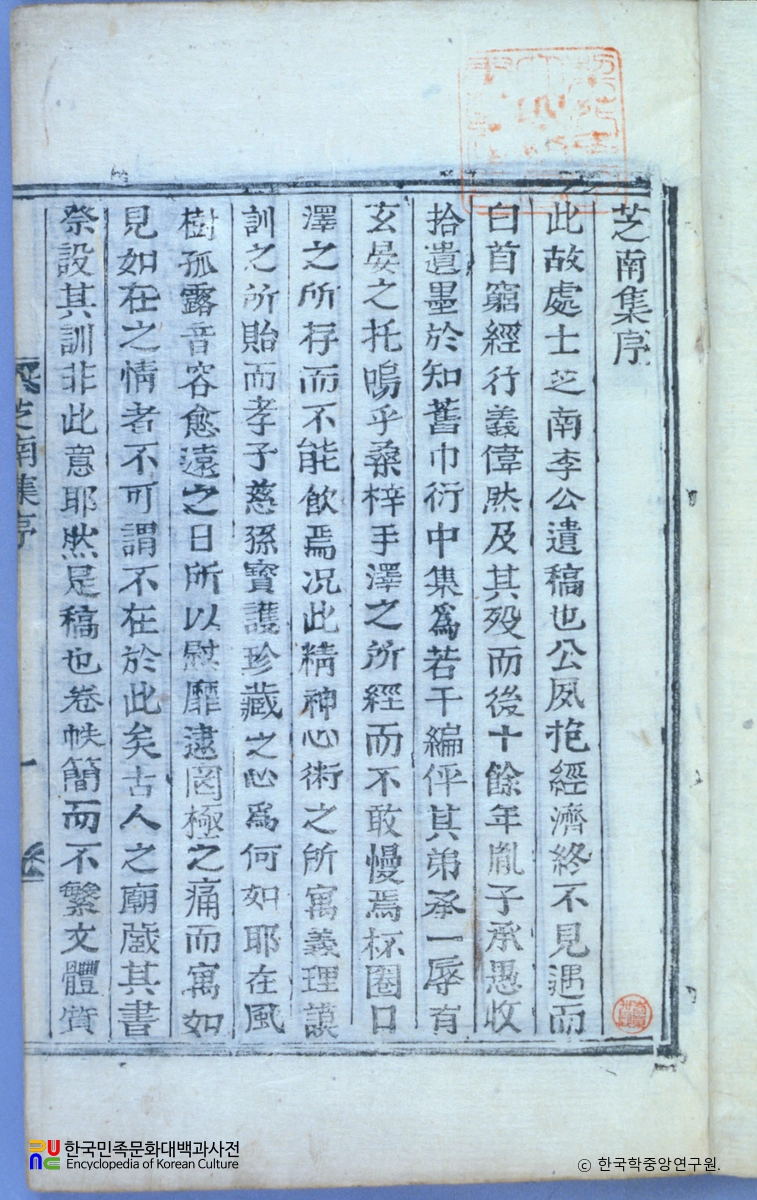 芝南集序
此故處士芝南李公遺稿也公夙抱經濟終不見遇而
白首窮經行義偉然及其歿而後十餘年胤子承愚收
拾遺墨於知舊巾衍中集爲若干編伻其弟承一辱有
玄晏之托嗚乎桑梓手澤之所經而不敢慢焉杯圈口
澤之所存而不能飮焉况此精神心術之所寓義理謨
訓之所貽而孝子慈孫寶護珍藏之心爲何如耶在風
樹孤露音容愈遠之日所以慰靡逮罔極之痛而寓如
見如在之情者不可謂不在於此矣古人之廟藏其書
祭設其訓非此意耶然是稿也卷帙簡而不繁文體質
芝南集序
一
한국민족문화대백과사전
Encyclopedia of Korean Culture
© 한국학중앙연구원.